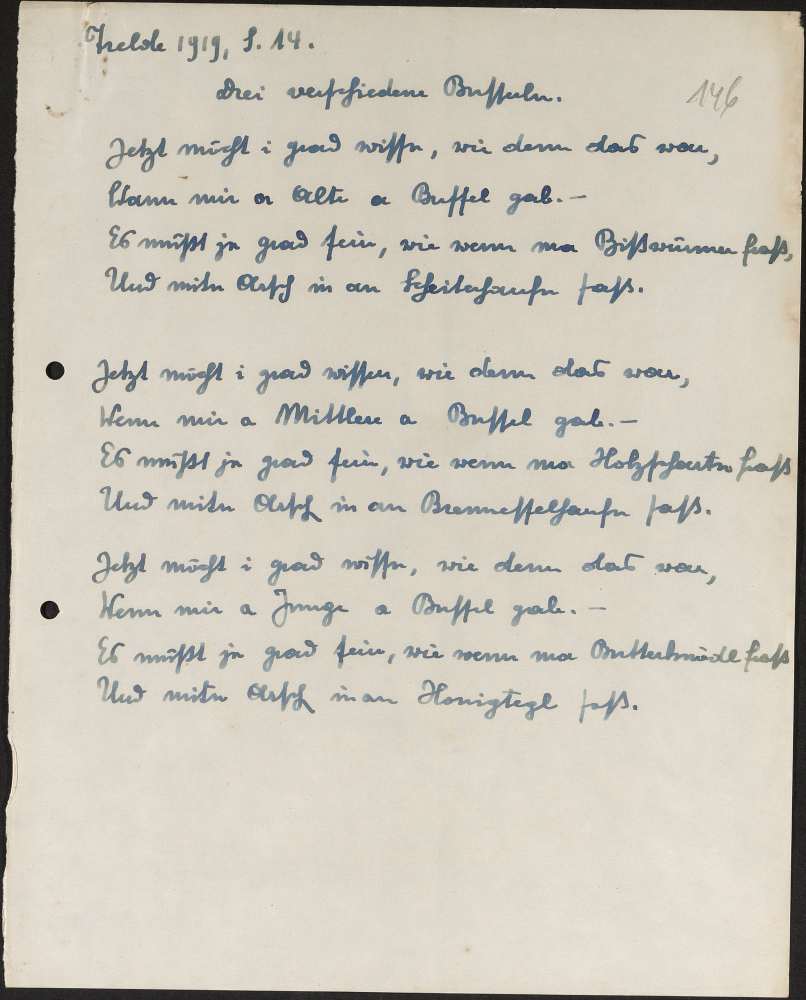 Zrelde 1919, S. 14.
Drei verschiedene Busserln.
146
Jetzt möcht i grad wissn, wie denn das war,
Wann mir a Alte a Bussel gab. —
Es müßt ja grad sein, wie wenn ma Bißwürmer fraß,
Und mitn Arsch in an Scheiterhaufn saß.
Jetzt möcht i grad wissen, wie denn das war,
Wenn mir a Mittlere a Bussel gab. —
Es müßt ja grad sein, wie wenn ma Holzschartn fraß
Und mitn Arsch in an Brennesselhaufn saß.
Jetzt möcht i grad wissn, wie denn das war,
Wenn mir a Junge a Bussel gab. —
Es müßt ja grad sein, wie wenn ma Butterknödl fraß
Und mitn Arsch in an Honigtegl saß.